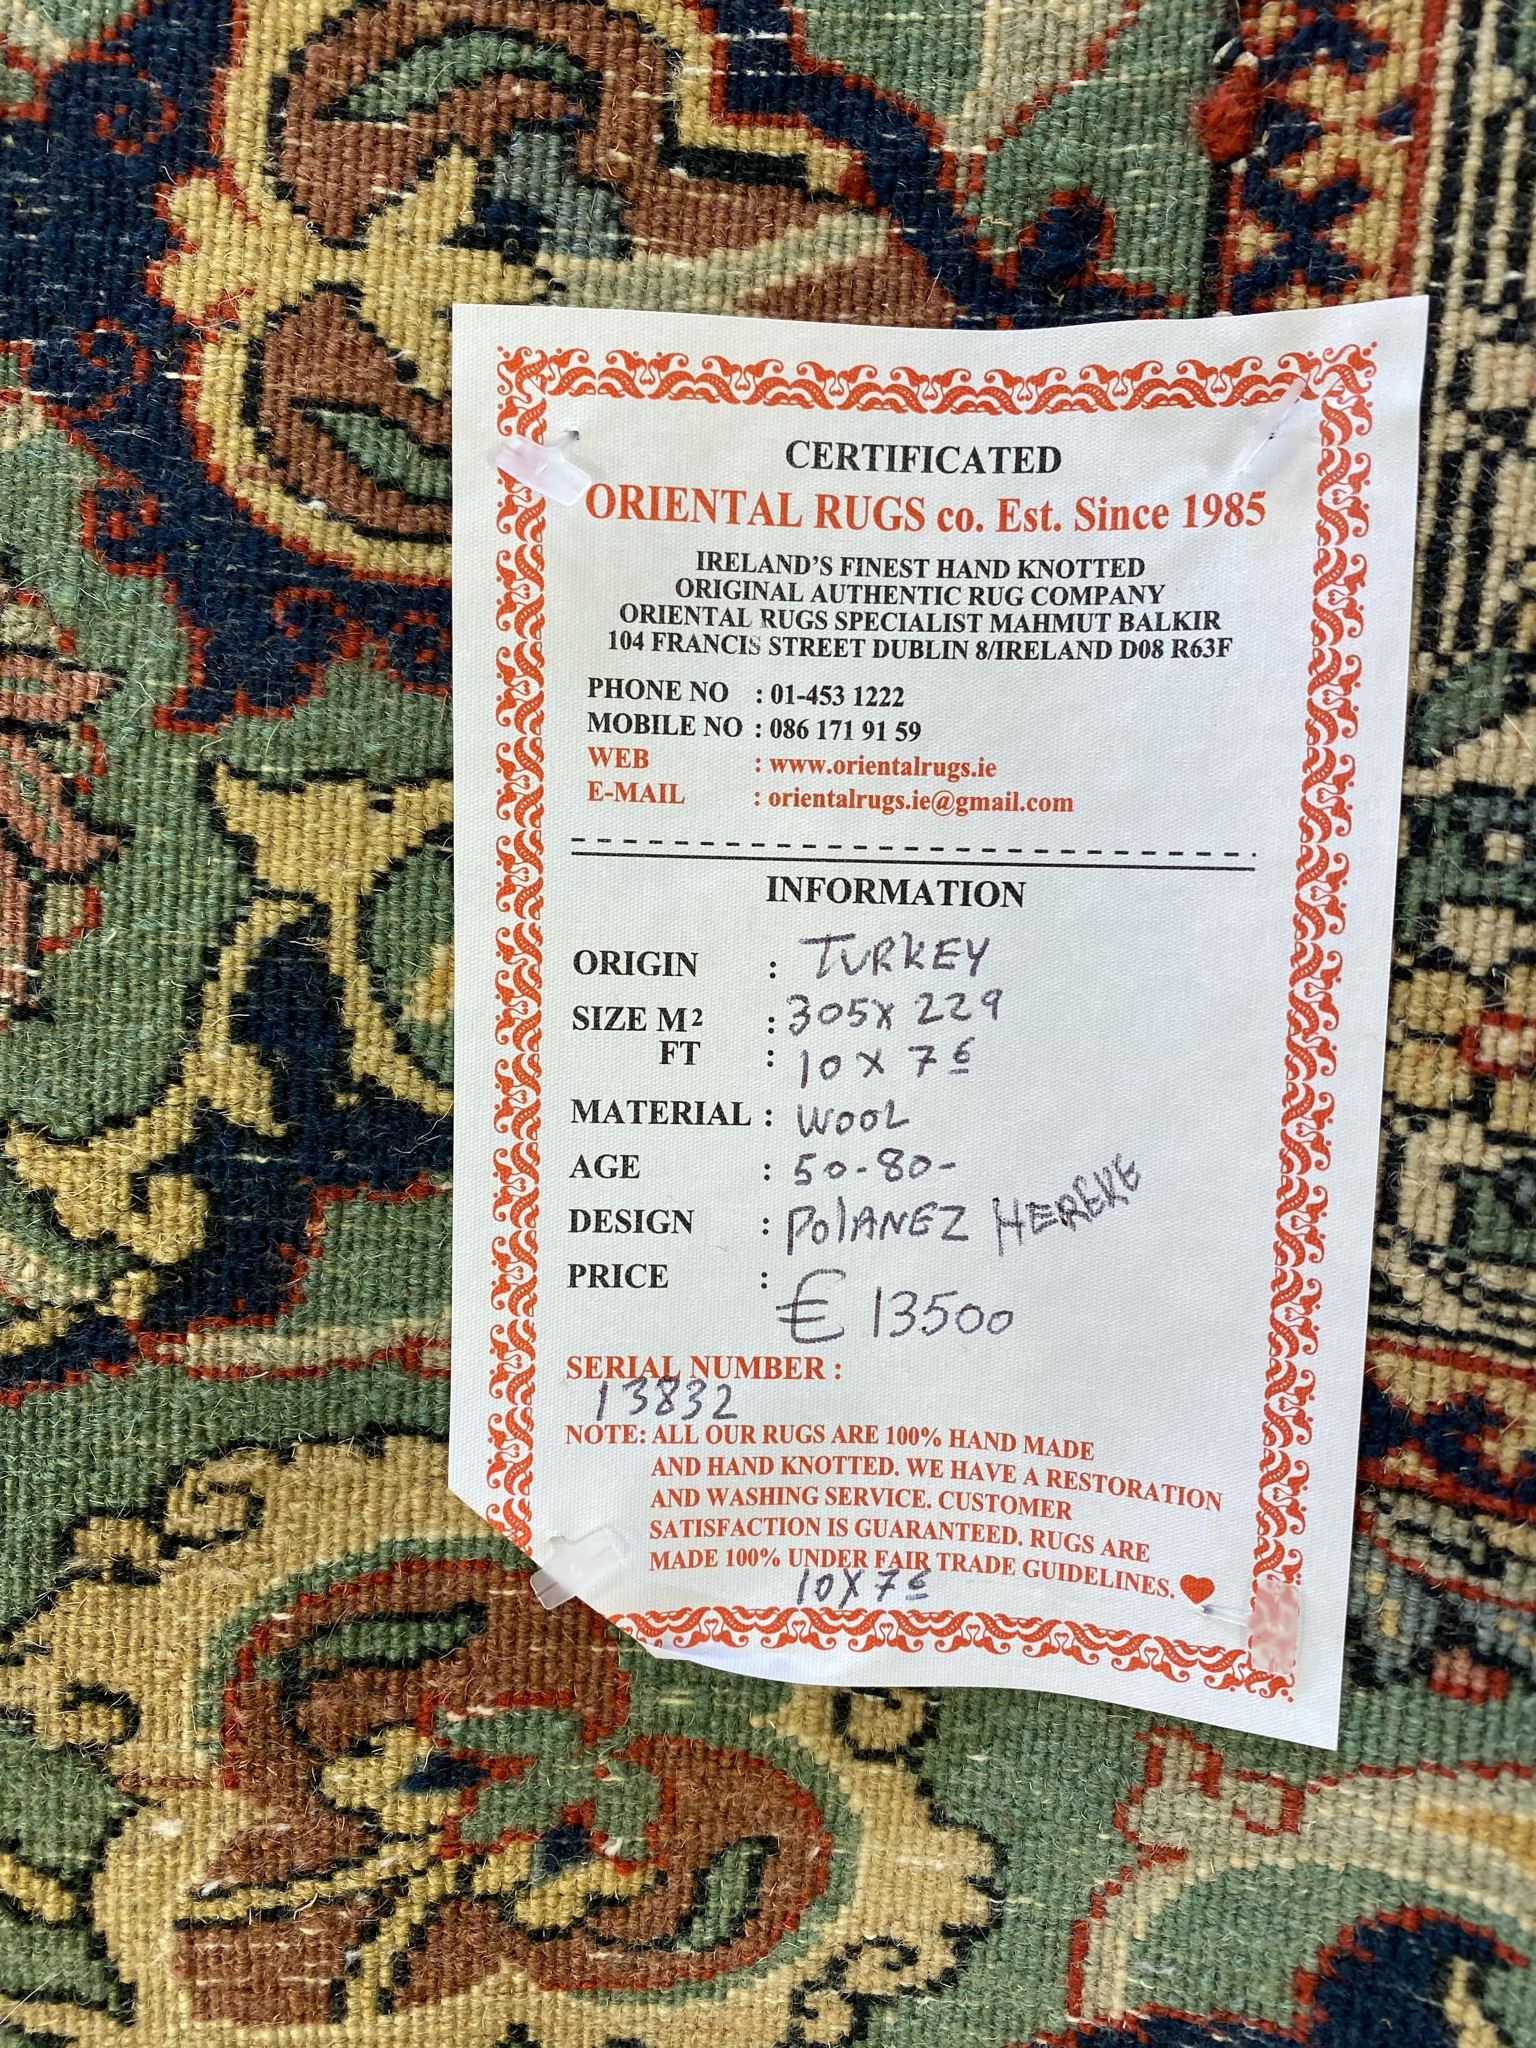 CERTIFICATED
ORIENTAL RUGS co. Est. Since 1985
IRELAND'S FINEST HAND KNOTTED
ORIGINAL AUTHENTIC RUG COMPANY
ORIENTAL RUGS SPECIALIST MAHMUT BALKIR
104 FRANCIS STREET DUBLIN 8/IRELAND D08 R63F
PHONE NO : 01-453 1222
MOBILE NO : 086 171 91 59
WEB : www.orientalrugs.ie
E-MAIL : orientalrugs.ie@gmail.com
INFORMATION
ORIGIN : TURKEY
SIZE M² : 305x 229
FT : 10 x 7 6
MATERIAL : WOOL
AGE : 50-80-
DESIGN : POlANEZ HEREKE
PRICE : € 13500
SERIAL NUMBER :
13832
NOTE: ALL OUR RUGS ARE 100% HAND MADE
AND HAND KNOTTED. WE HAVE A RESTORATION
AND WASHING SERVICE. CUSTOMER
SATISFACTION IS GUARANTEED. RUGS ARE
MADE 100% UNDER FAIR TRADE GUIDELINES.
10 X 7 6